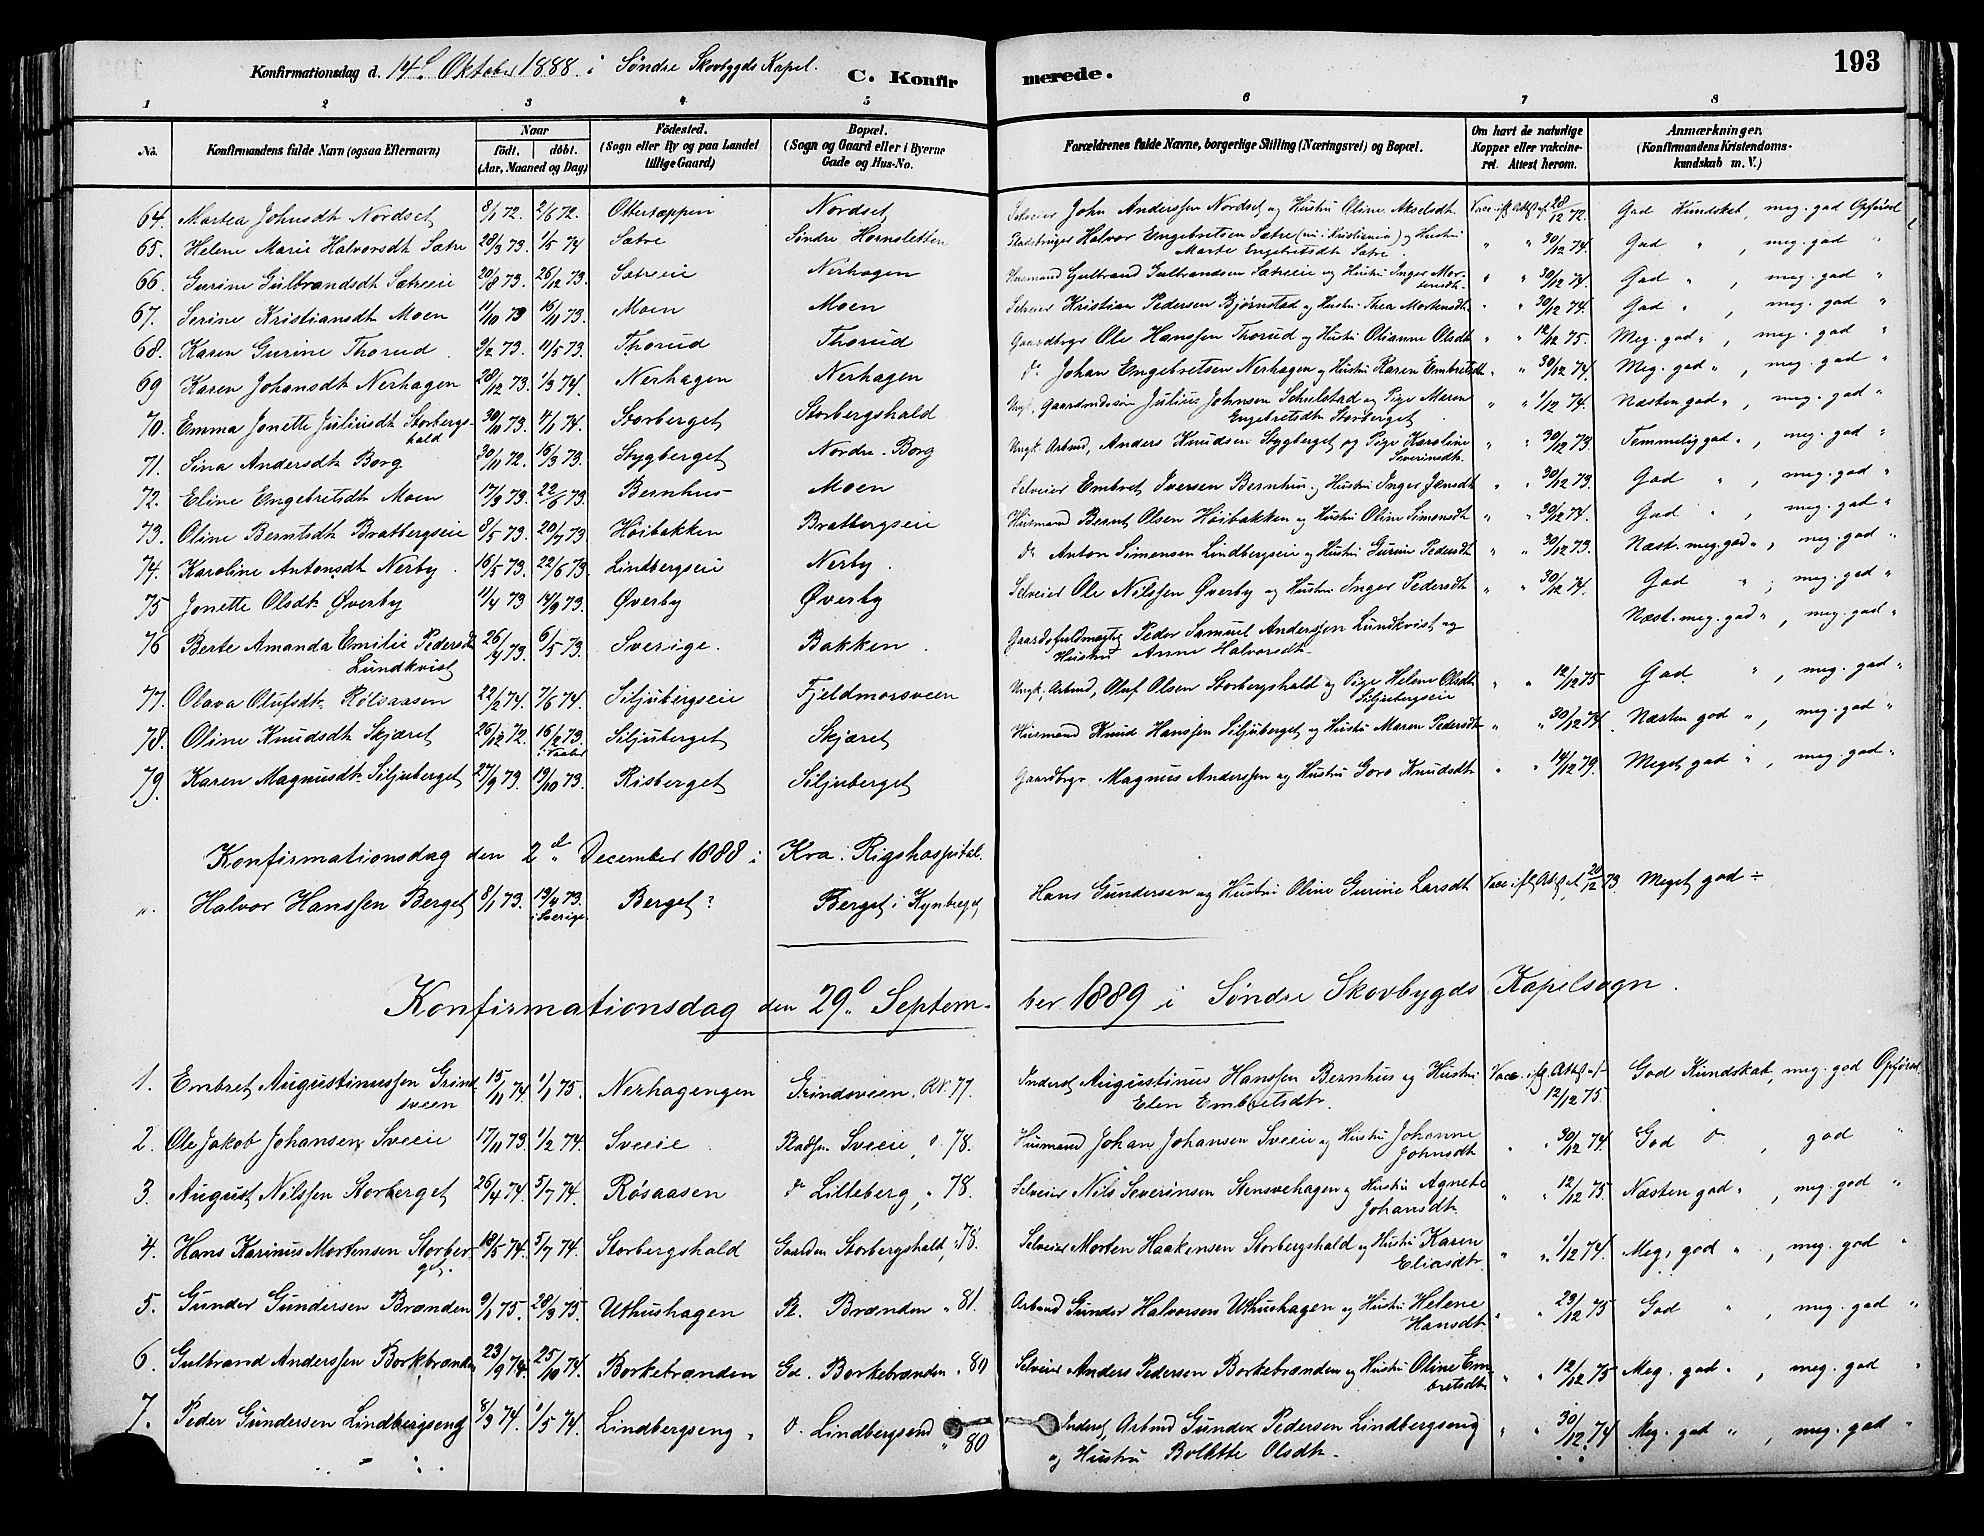 193
Konfirmationsdag d. 14d Oktober 1888 i Søndre Skovbygds Kapel. C. Konfirmerede.
1 2 3 4 5 6 7 8
No. Konfirmandens fulde Navn (ogsaa Efternavn) Naar födt. döbt. (Aar, Maaned og Dag) Födested. (Sogn eller By og paa Landet tillige Gaard) Bopæl. (Sogn og Gaard eller i Byerne Gade og Hus-No. Forældrenes fulde Navne, borgerlige Stilling (Næringsvei) og Bopæl. Om havt de naturlige Kopper eller vakcineret. Attest herom. Anmærkninger. (Konfirmandens Kristendomskundskab m. V.)
64. Martea Johnsdt Nordset 8/1 72. 2/6 72. Ottertappen Nordset Selveier John Anderssen Nordset og Hustru Oline Akselsdt Vacc. ift. Attst af 28/12 72. God Kundskab, meg. god Opførsel
65. Helene Marie Halvorsdt Sætre 28/3 73. 1/5 74 Sætre Søndre Hornsletten Halvor Engebretsen Sætre (nu i Kristiania) og Hustru Marte Engebretsdt Sætre. " " 30/12 74. God " , meg. god "
66. Gurine Gulbrandsdt Sætreeie 20/8 73. 26/12 73. Sætreeie Nerhagen Husmand Gulbrand Gulbrandsen Sætreeie og Hustru Inger Mortensdt. " " 30/12 74. God " , meg. god "
67. Serine Kristiansdt Moen 11/10 73 16/11 73. Moen Moen Selveier Kristian Pedersen Bjørnstad og Hustru Thea Mortensdt " " 30/12 74. God " , meg. god "
68. Karen Gurine Thorud 9/2 73. 11/5 73. Thorud Thorud Gaardbrgr Ole Hanssen Thorud og Hustru Olianne Olsdt " " 12/12 75. Meg. god " , meg. god "
69 Karen Johansdt Nerhagen 28/12 73. 1/3 74. Nerhagen Nerhagen do Johan Engebretsen Nerhagen og Hustru Karen Embretsdt " " 30/12 74. Meg. god " , meg. god "
70. Emma Jonette Juliusdt Storbergshald 30/11 73. 4/1 74. Storberget Storbergshald Ungk. Gaardmandssøn Julius Johnsen Schulstad og Pige Maren Engebretsdt Storberget " " 1/12 74. Næsten god " , meg. god "
71. Sina Andersdt Borg 30/11 72. 16/3 73. Stygberget Nordre Borg Ungk. Arbmd, Anders Knudsen Stygberget og Pige Karoline Severinsdt. " " 30/12 73. Temmelig god " , meg. god "
72. Eline Engebretsdt Moen 17/3 73. 22/6 73. Bernhus Moen Selveier Embret Iversen Bernhus og Hustru Inger Jensdt " " 30/12 73. God " , meg. god "
73. Oline Berntsdt Bratbergseie 8/5 73. 20/7 73. Höibakken Bratbergseie Husmand Bernt Olsen Höibakken og Hustru Oline Simensdt " " 30/12 74. God " , meg. god "
74. Karoline Antonsdt Nerby 16/5 73. 22/6 73. Lindbergseie Nerby. do Anton Simensen Lindbergseie og Hustru Gurine Pedersdt " " 30/12 73. Næst. meg. god " , meg. god "
75 Jonette Olsdt Øverby 11/4 73 14/9 73. Øverby Øverby Selveier Ole Nilssen Øverby og Hustru Inger Pedersdt " " 30/12 74. God " , meg. god "
76 Berte Amanda Emilie Pedersdt Lundkvist 26/4 73. 6/5 73. Sverige. Bakken. Gaardsfuldmægtig Peder Samuel Anderssen Lundkvist og Hustru Anne Halvorsdt Næst. meg. god " , meg. god "
77. Olava Olufsdt Rölsaasen 22/2 74. 7/6 74. Siljubergseie Fjeldmorsveen Ungk. Arbmd, Oluf Olsen Storbergshald og Pige Helene Olsdt Siljubergseie " " 12/12 75 God " , meg. god "
78. Oline Knudsdt Skjæret 26/12 72. 16/2 73. i Vaaler Siljuberget Skjæret Husmand Knud Hanssen Siljuberget og Hustru Maren Pedersdt " " 30/12 74. Næsten god " , meg. god "
79. Karen Magnusdt Siljuberget 27/9 73. 19/10 73. Risberget Siljuberget Gaardbrgr Magnus Anderssen og Hustru Goro Knudsdt " " 14/12 79. Meget god " , meg. god "
Konfirmationsdag den 2d December 1888 i Kra. Rigshospital.
". Halvor Hanssen Berget 8/1 73. 13/4 73. i Sverige Berget? Berget i Kynberget Hans Gundersen og Hustru Oline Gurine Larsdt Vacc. ift Attst af 20/12 73. Meget god ÷
Konfirmationsdag den 29d September 1889 i Søndre Skovbygds Kapelsogn.
1. Embret Augustinussen Grindsveen 15/11 74 1/1 75. Nerhagengen Grindsveen, RN. 77. Inderst Augustinus Hanssen Bernhus og Hustru Elen Embretsdtr. Vacc. ifg. Attst af 12/12 75 God Kundskab, meg. god Opførsel
2. Ole Jakob Johansen Sveeie 17/11 73. 1/2 74. Sveeie Pladsen Sveeie, " 78. Husmand Johan Johansen Sveeie og Hustru Johanne Johnsdt " " 30/12 74. God do , god "
3. August Nilssen Storberget 26/4 74. 5/7 74. Rösaasen do Lilleberg, " 78. Selveier Nils Severinsen Stensvehagen og Hustru Agnete Johansdtr. " " 12/12 75. Næsten god " , meg. god "
4. Hans Karinus Mortensen Storberget. 18/5 74. 5/7 74. Storbergshald Gaarden Storbergshald, " 78. Selveier Morten Haakensen Storbergshald og Hustru Karen Eliasdtr " " 1/12 74. Meg. god " , meg. god "
5. Gunder Gundersen Brænden 9/1 75. 28/3 75. Uthushagen Pl. Brænden " 81. Arbmd Gunder Halvorsen Uthushagen og Hustru Helene Hansdtr. " " 23/12 75 God " , meg. god "
6. Gulbrand Anderssen Borkbrænden 23/9 74. 25/10 74. Borkebrænden Gd. Borkebrænden " 80 Selveier Anders Pedersen Borkebrænden og Hustru Oline Embretsdtr " " 12/12 75 Meg. god " , meg. god "
7. Peder Gundersen Lindbergseng 8/3 74. 1/5 74. Lindbergseng " do. Lindbergsend " 80 Inderst, Arbmd Gunder Pedersen Lindbergseng og Hustru Bolette Olsdtr. " " 30/12 74 Meg. god " , meg. god "